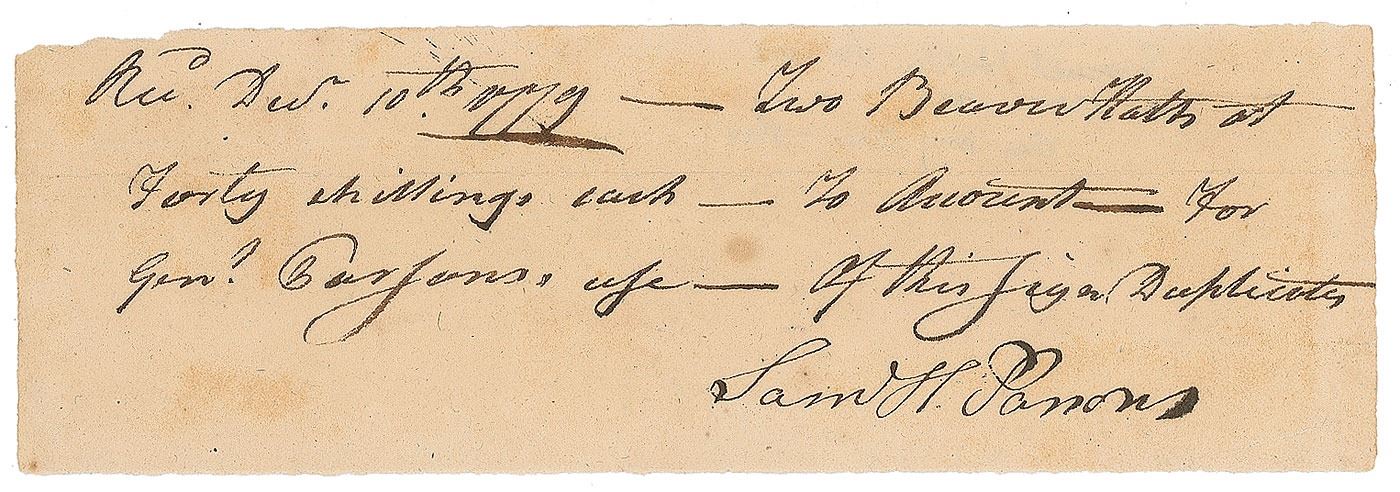 Recd. Decr. 10.th 1779 — Two Beaver Hatts at
Forty shillings each — To Account — For
Genl. Parsons, use — Of this Sign Duplicates
Saml H. Parsons